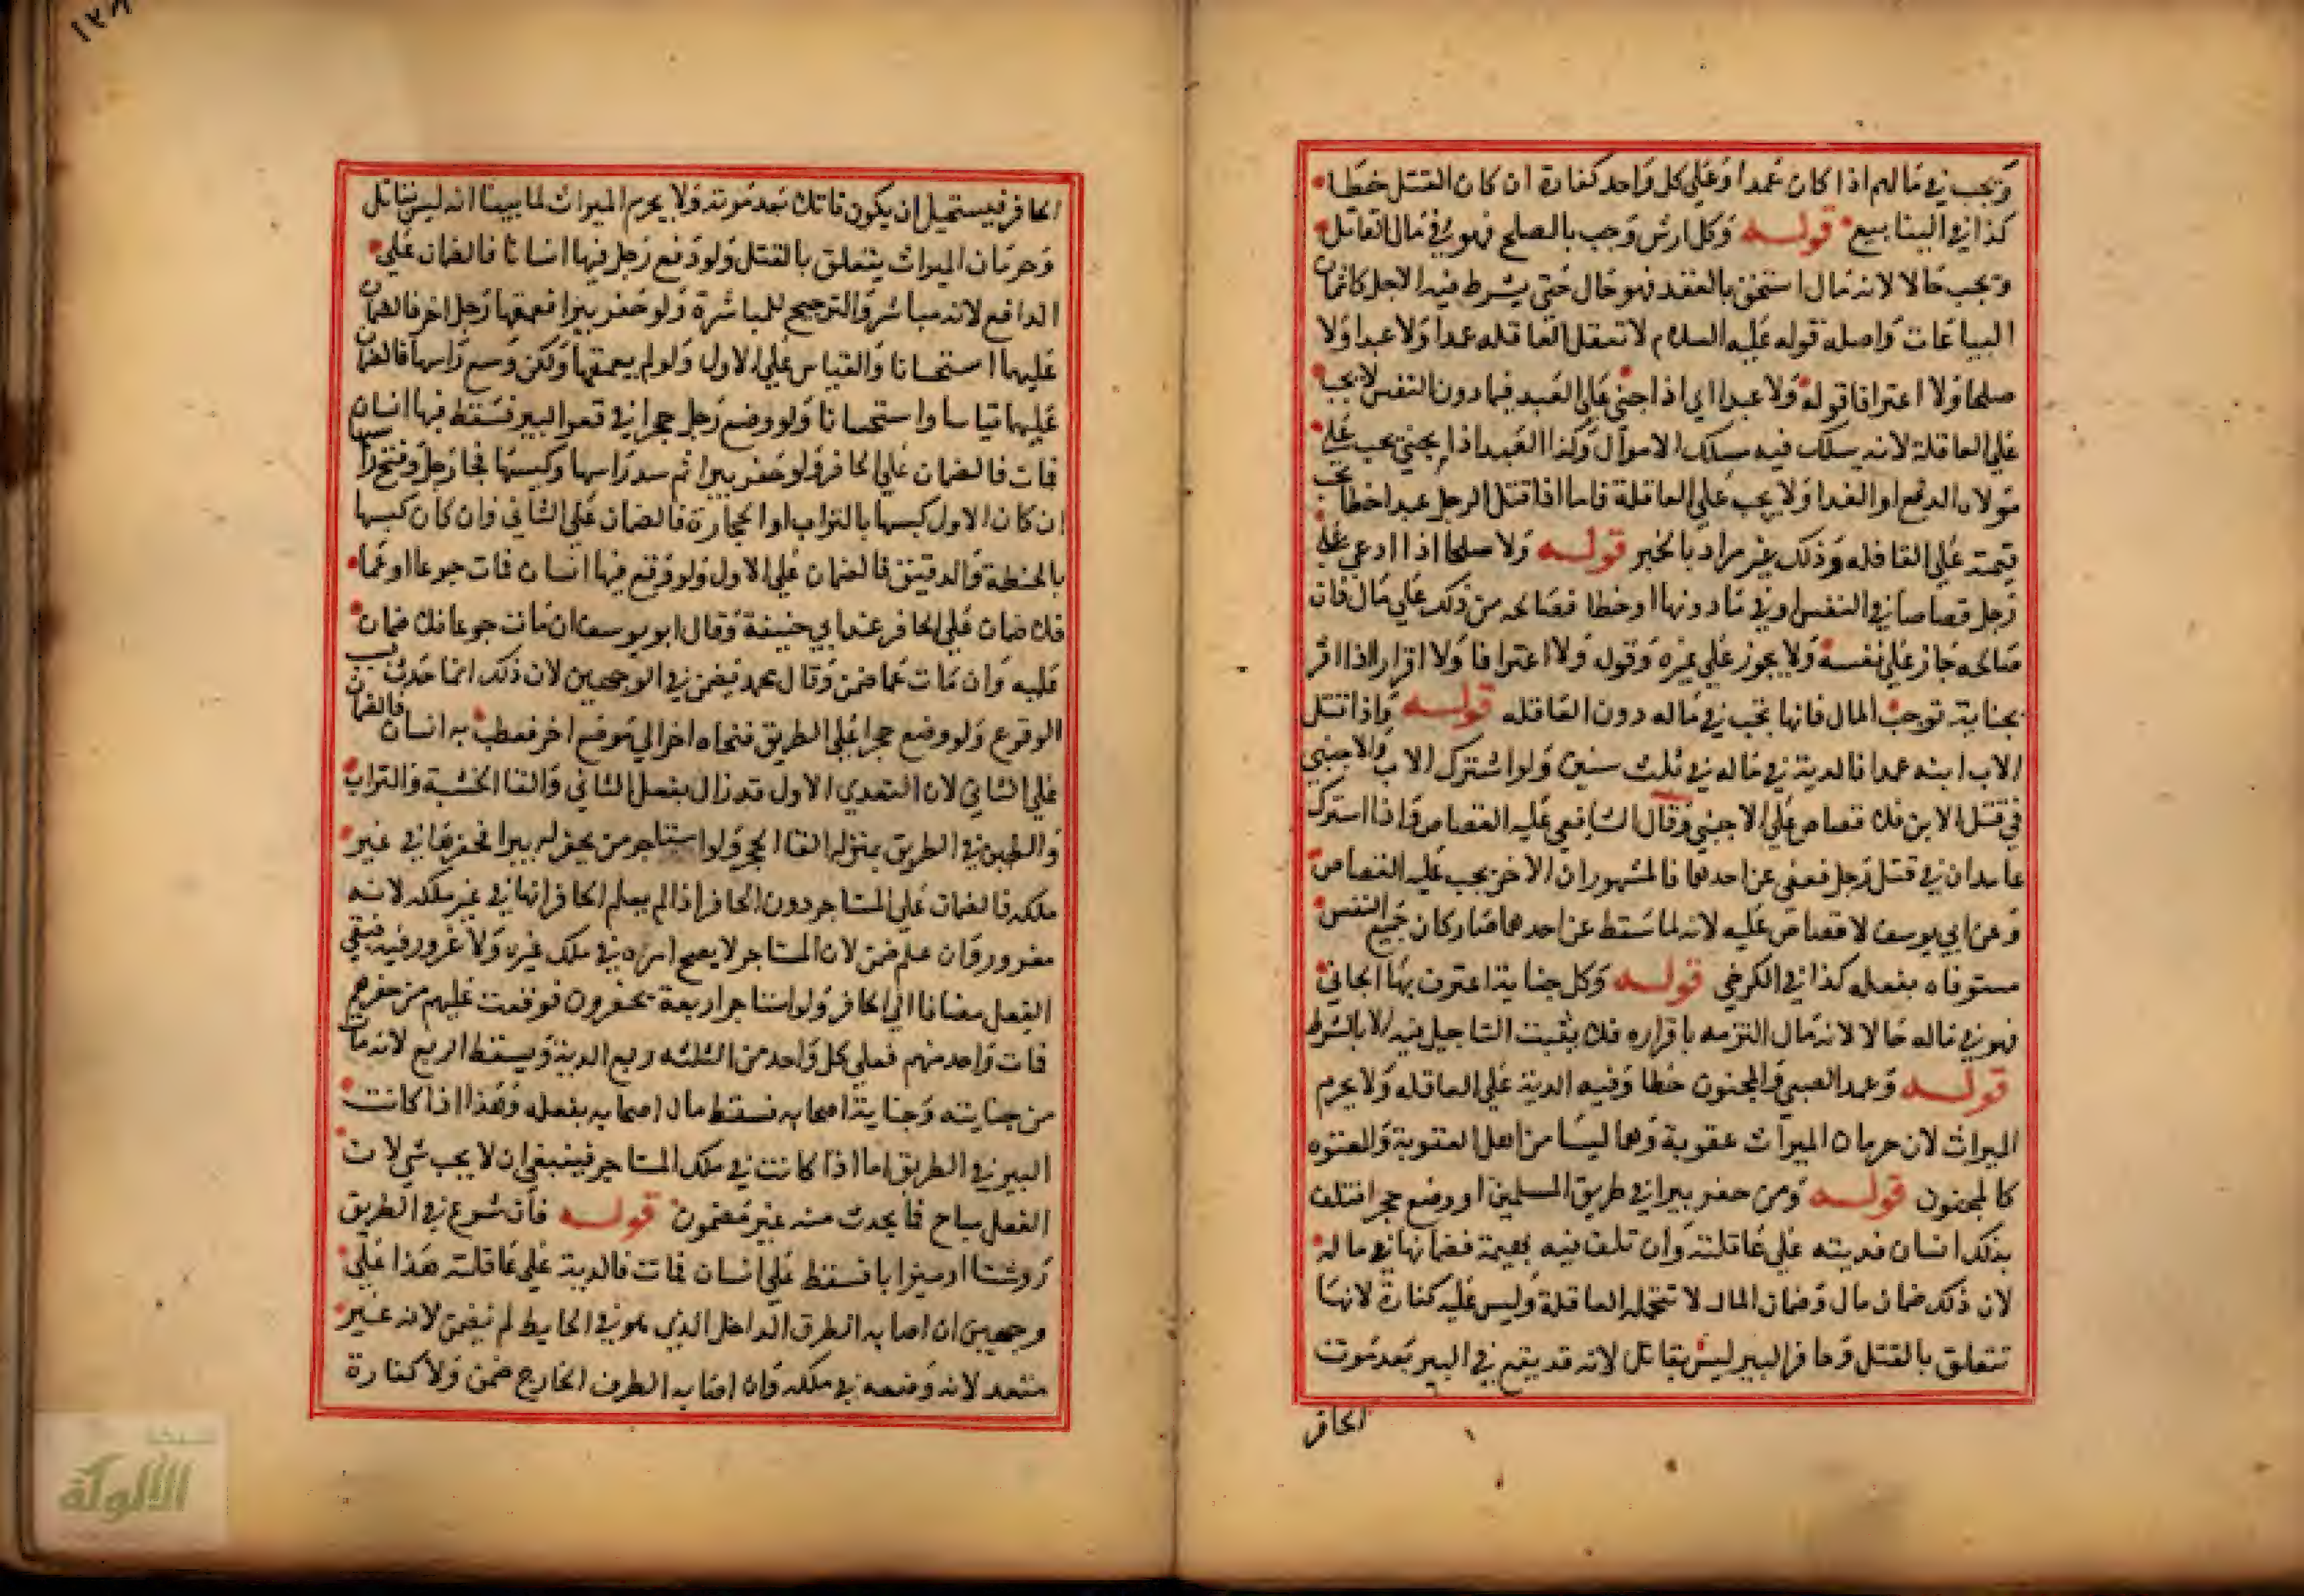 وتجب في مالهم اذا كان عمدا وعلى كل واحد كفارة ان كان القتل خطا
كذا في الينابيع قوله وكل ارش وجب بالصلح فهو في مال القاتل
وتجب حالا لانه مال استحق بالعقد فهو حال حتى يشرط فيه الاجل كاثمان
البياعات واصله قوله عليه السلام لا تعقل العاقله عمدا ولا عبدا ولا
صلحا ولا اعترافا قوله ولا عبدا اي اذا جني على العبد فيما دون النفس لا يجب
على العاقلة لانه يسلك فيه مسلك الاموال وكذا العبد اذا جني يجب على
مولاه الدفع او الفدا ولا يجب على العاقلة فاما اذا قتل الرجل عبدا خطا تجب
قيمته على العاقله وذلك غير مراد بالخبر قوله ولا صلحا اذا ادعي على
رجل قصاصا في النفس او في ما دونها او خطا فصالحه من ذلك على مال فان
صالحه جاز على نفسه ولا يجوز على غيره وقوله ولا اعترافا ولا اقرار اذا اقر
بجناية توجب المال فانها تجب في ماله دون العاقله قوله واذا قتل
الاب ابنه عمدا فالدية في ماله في ثلث سنين ولو اشترك الاب والاجنبي
في قتل الابن فلا قصاص على الاجنبي وقال الشافعي عليه القصاص واذا اشترك
عامدان في قتل رجل فعفي عن احدهما فالمشهور ان الاخر يجب عليه القصاص
وعن ابي يوسف لا قصاص عليه لانه لما سقط عن احدهما صار كان جميع النفس
مستوفاه بفعله كذا في الكرخي قوله وكل جناية اعترف بها الجاني
فهو في ماله حالا لانه مال التزمه باقراره فلا يثبت التاجيل فيه الا بالشرط
قوله وعمد الصبي والمجنون خطا وفيه الدية على العاقله ولا يحرم
الميراث لان حرمان الميراث عقوبة وهما ليسا من اهل العقوبة والمعتوه
كالمجنون قوله ومن حفر بيرا في طريق المسلمين او وضع حجرا فتلف
بذلك انسان فديته على عاقلته وان تلف فيه بهيمة فضمانها في ماله
لان ذلك ضمان مال وضمان المال لا تتحمله العاقلة وليس عليه كفارة لانها
تتعلق بالقتل وحافر البير ليس بقاتل لانه قد يقع في البير بعد موت
الحافر
الحافر فيستحيل ان يكون قاتلا بعد موته ولا يحرم الميراث لما بينا انه ليس بقاتل
وحرمان الميراث يتعلق بالقتل ولو دفع رجل فيها انسانا فالضمان على
الدافع لانه مباشر والترجيح للمباشرة ولو حفر بيرا فعمقها رجل اخر فالضمان
عليهما استحسانا والقياس على الاول ولو لم يعمقها ولكن وسع راسها فالضمان
عليهما قياسا واستحسانا ولو وضع رجل حجرا في قعر البير فسقط فيها انسان
فمات فالضمان على الحافر ولو حفر بيرا ثم سد راسها وكبسها فجا رجل وفتح راسها
ان كان الاول كبسها بالتراب او الحجارة فالضمان على الثاني وان كان كبسها
بالحنطة والدقيق فالضمان على الاول ولو وقع فيها انسان فمات جوعا او غما
فلا ضمان على الحافر عند ابي حنيفة وقال ابو يوسف ان مات جوعا فلا ضمان
عليه وان مات غما ضمن وقال محمد يضمن في الوجهين لان ذلك انما حدث بسبب
الوقوع ولو وضع حجرا على الطريق فنحاه اخر الى موضع اخر فعطب به انسان فالضمان
على الثاني لان التعدي الاول قد زال بفعل الثاني والقا الخشبة والتراب
والطين في الطريق بمنزلة القا الحجر ولو استاجر من يحفر له بيرا فحفرها في غير
ملكه فالضمان على المستاجر دون الحافر اذا لم يعلم الحافر انها في غير ملكه لانه
مغرور وان علم ضمن لان المستاجر لا يصح امره في ملك غيره ولا غرور فيه فبقي
الفعل مضافا الى الحافر ولو استاجر اربعة يحفرون فوقعت عليهم من حفرهم
فمات واحد منهم فعلى كل واحد من الثلثه ربع الدية ويسقط الربع لانه مات
من جنايته وجناية اصحابه فسقط ما اصابه بفعله وهذا اذا كانت
البير في الطريق اما اذا كانت في ملك المستاجر فينبغي ان لا يجب شي لان
الفعل مباح فما يحدث منه غير مضمون قوله فان شرع في الطريق
روشنا او ميزابا فسقط على انسان فمات فالدية على عاقلته هذا على
وجهين ان اصابه الطرف الداخل الذي هو في الحايط لم يضمن لانه غير
متعد لانه وضعه في ملكه وان اصابه الطرف الخارج ضمن ولا كفارة